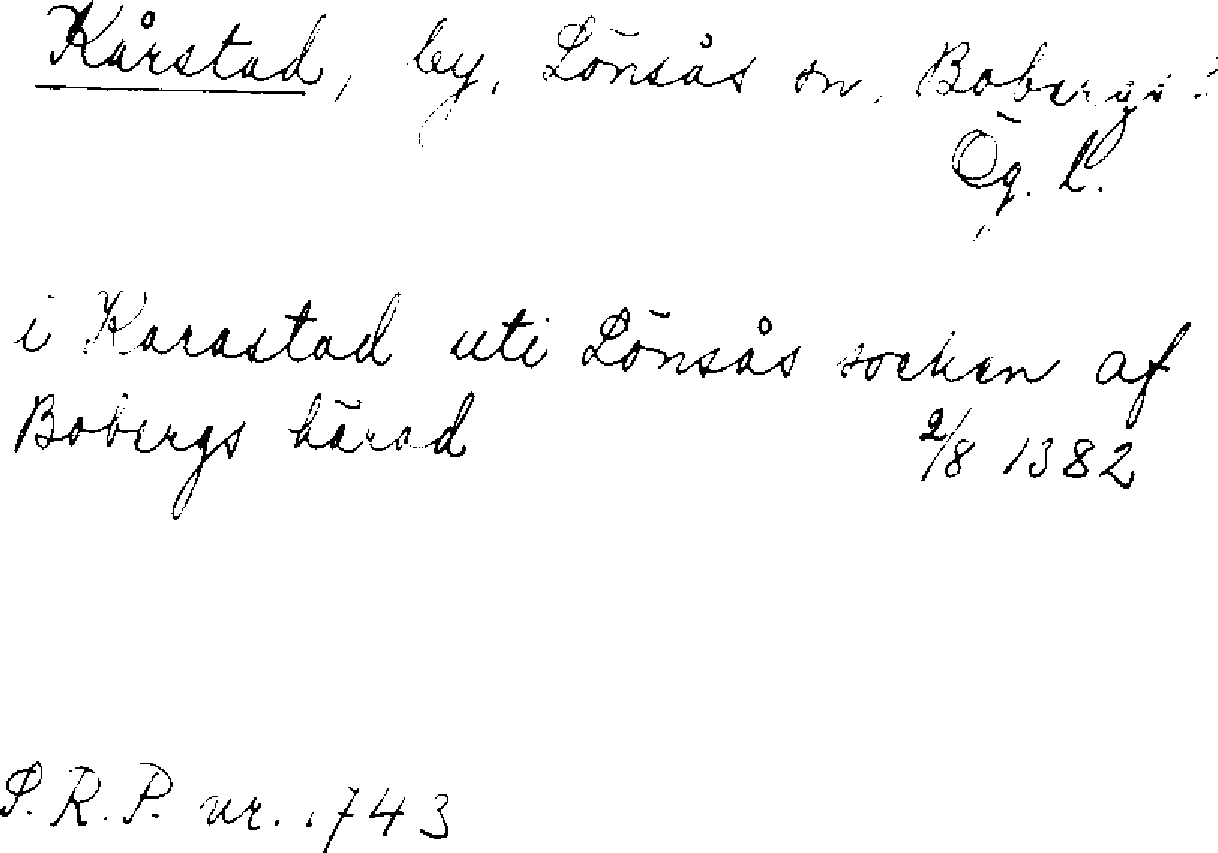 Kårstad, by, Lönsås sn, Bobergs
Ög. L.
i Karastad uti Lönsås socken af
Bobergs härad 2/8 1382
S. R. P. nr. 1743